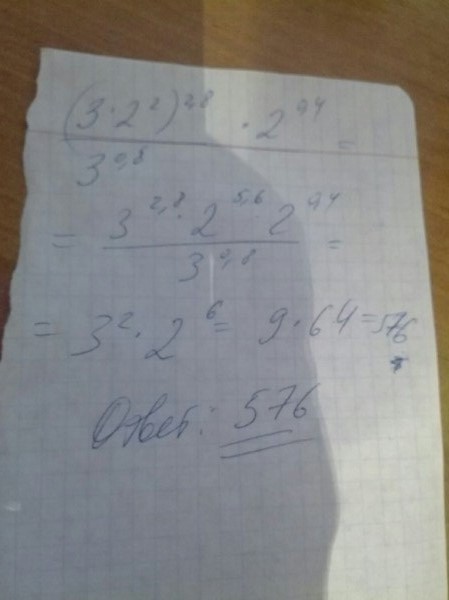 (3·2²)^2,8 · 2^0,4 =
3^0,8
= 3^2,8 · 2^5,6 · 2^0,4 =
3^0,8
= 3² · 2^6 = 9·64=576
Ответ: 576